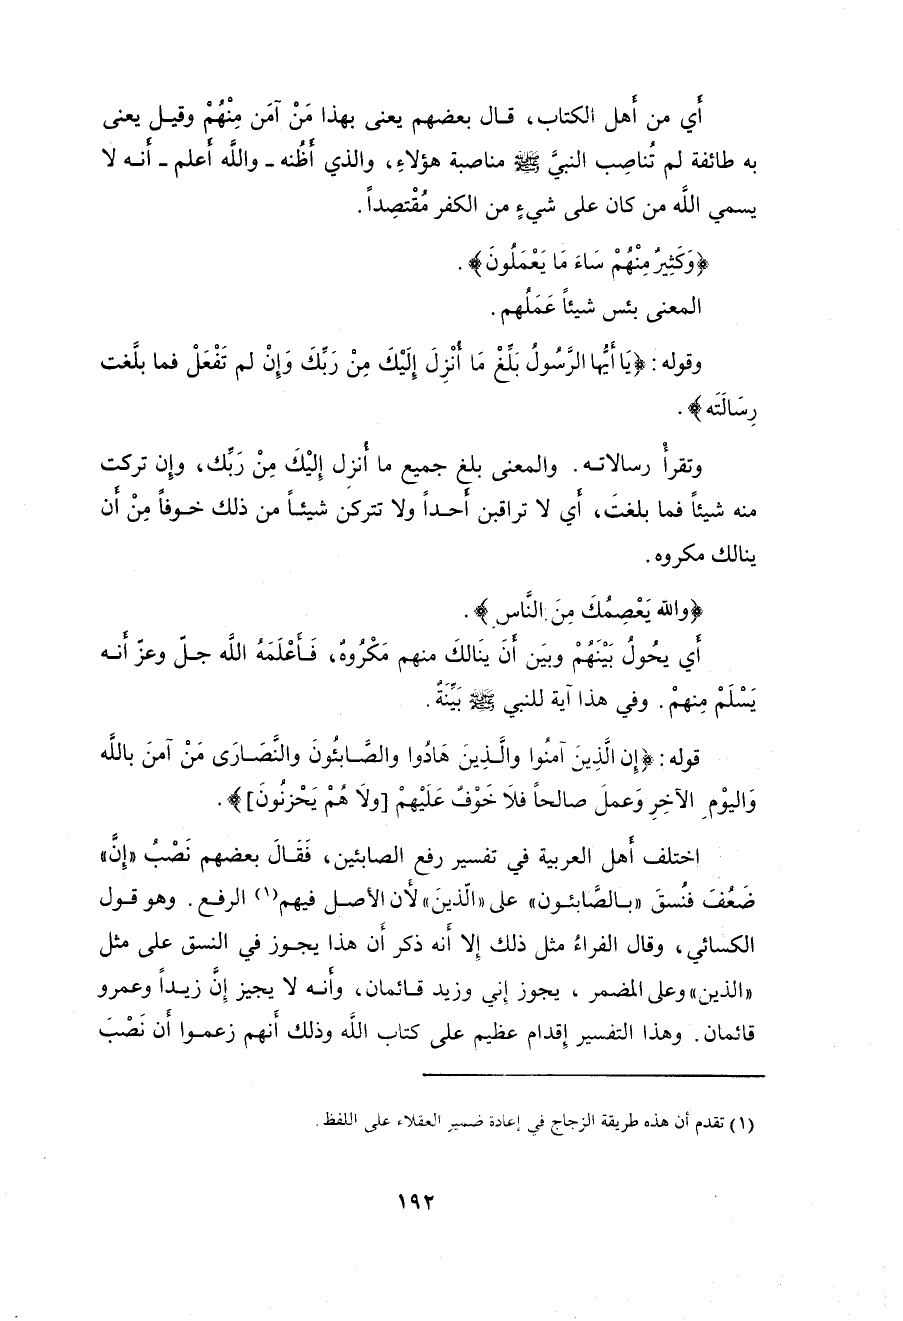 أَي من أَهل الكتاب، قـال بعضهم يعنى بهذا مَنْ آمَن مِنْهُمْ وقيـل يعنى
به طائفة لم تُناصِب النبيَّ ﷺ مناصبة هؤلاءِ، والذي أَظُنه ـ واللَّه أَعلم ـ أَنـه لا
يسمي اللَّه من كان على شيءٍ من الكفر مُقْتصِداً.
﴿وَكَثِيرٌ مِنْهُمْ سَاءَ مَا يَعْمَلُونَ﴾.
المعنى بئس شيئاً عَمَلُهم.
وقوله: ﴿يَا أَيُّها الرَّسُولُ بَلِّغْ مَا أُنْزِلَ إِلَيْكَ مِنْ رَبِّكَ وَإِنْ لم تَفْعَلْ فما بلَّغت
رِسَالَتَه﴾.
وتقرأْ رسالاتـه. والمعنى بلغ جميع ما أُنزل إِلَيْكَ مِنْ رَبِّك، وإِن تركت
منه شيئاً فما بلغتَ، أَي لا تراقبن أَحـداً ولا تتركن شيئـاً من ذلك خـوفاً مِنْ أَن
ينالك مكروه.
﴿والله يَعْصِمُكَ مِنَ النَّاسِ﴾.
أَي يحُولُ بَيْنَهُمْ وبين أَنَ يَنَالكَ منهم مَكْرُوهٌ، فَـأَعْلَمَهُ اللَّه جـلّ وعزّ أَنـه
يَسْلَمْ مِنهمْ. وفي هذا آية للنبي ﷺ بَيِّنَةٌ.
قوله: ﴿إِن الَّذِينَ آمنُوا والَّـذِينَ هَادُوا والصَّابئُونَ والنَّصَـارَى مَنْ آمنَ باللَّه
وَاليوْمِ الآخرِ وَعملَ صالحاً فلَا خَوْفٌ عَلَيْهمْ [ولَا هُمْ يَحْزنُونَ]﴾.
اختلف أَهل العربية في تفسير رفع الصابئين، فَقَـالَ بعضهم نَصْبُ «إِنَّ»
ضَعُفَ فنُسقَ «بـالصَّابئـون» على «الّذينَ» لأَن الأصـل فيهم(١) الرفـع. وهو قـول
الكسائي، وقال الفراءُ مثل ذلك إِلا أَنه ذكر أَن هذا يجـوز في النسق على مثل
«الذين» وعلى المضمر، يجوز إني وزيد قـائمان، وأَنـه لا يجيز إنَّ زيـداً وعمرو
قائمان. وهـذا التفسير إِقدام عظيم على كتاب اللَّه وذلك أَنهم زعمـوا أَن نَصْبَ
(١) تقدم أن هذه طريقة الزجاج في إعادة ضمير العقلاء على اللفظ.
١٩٢